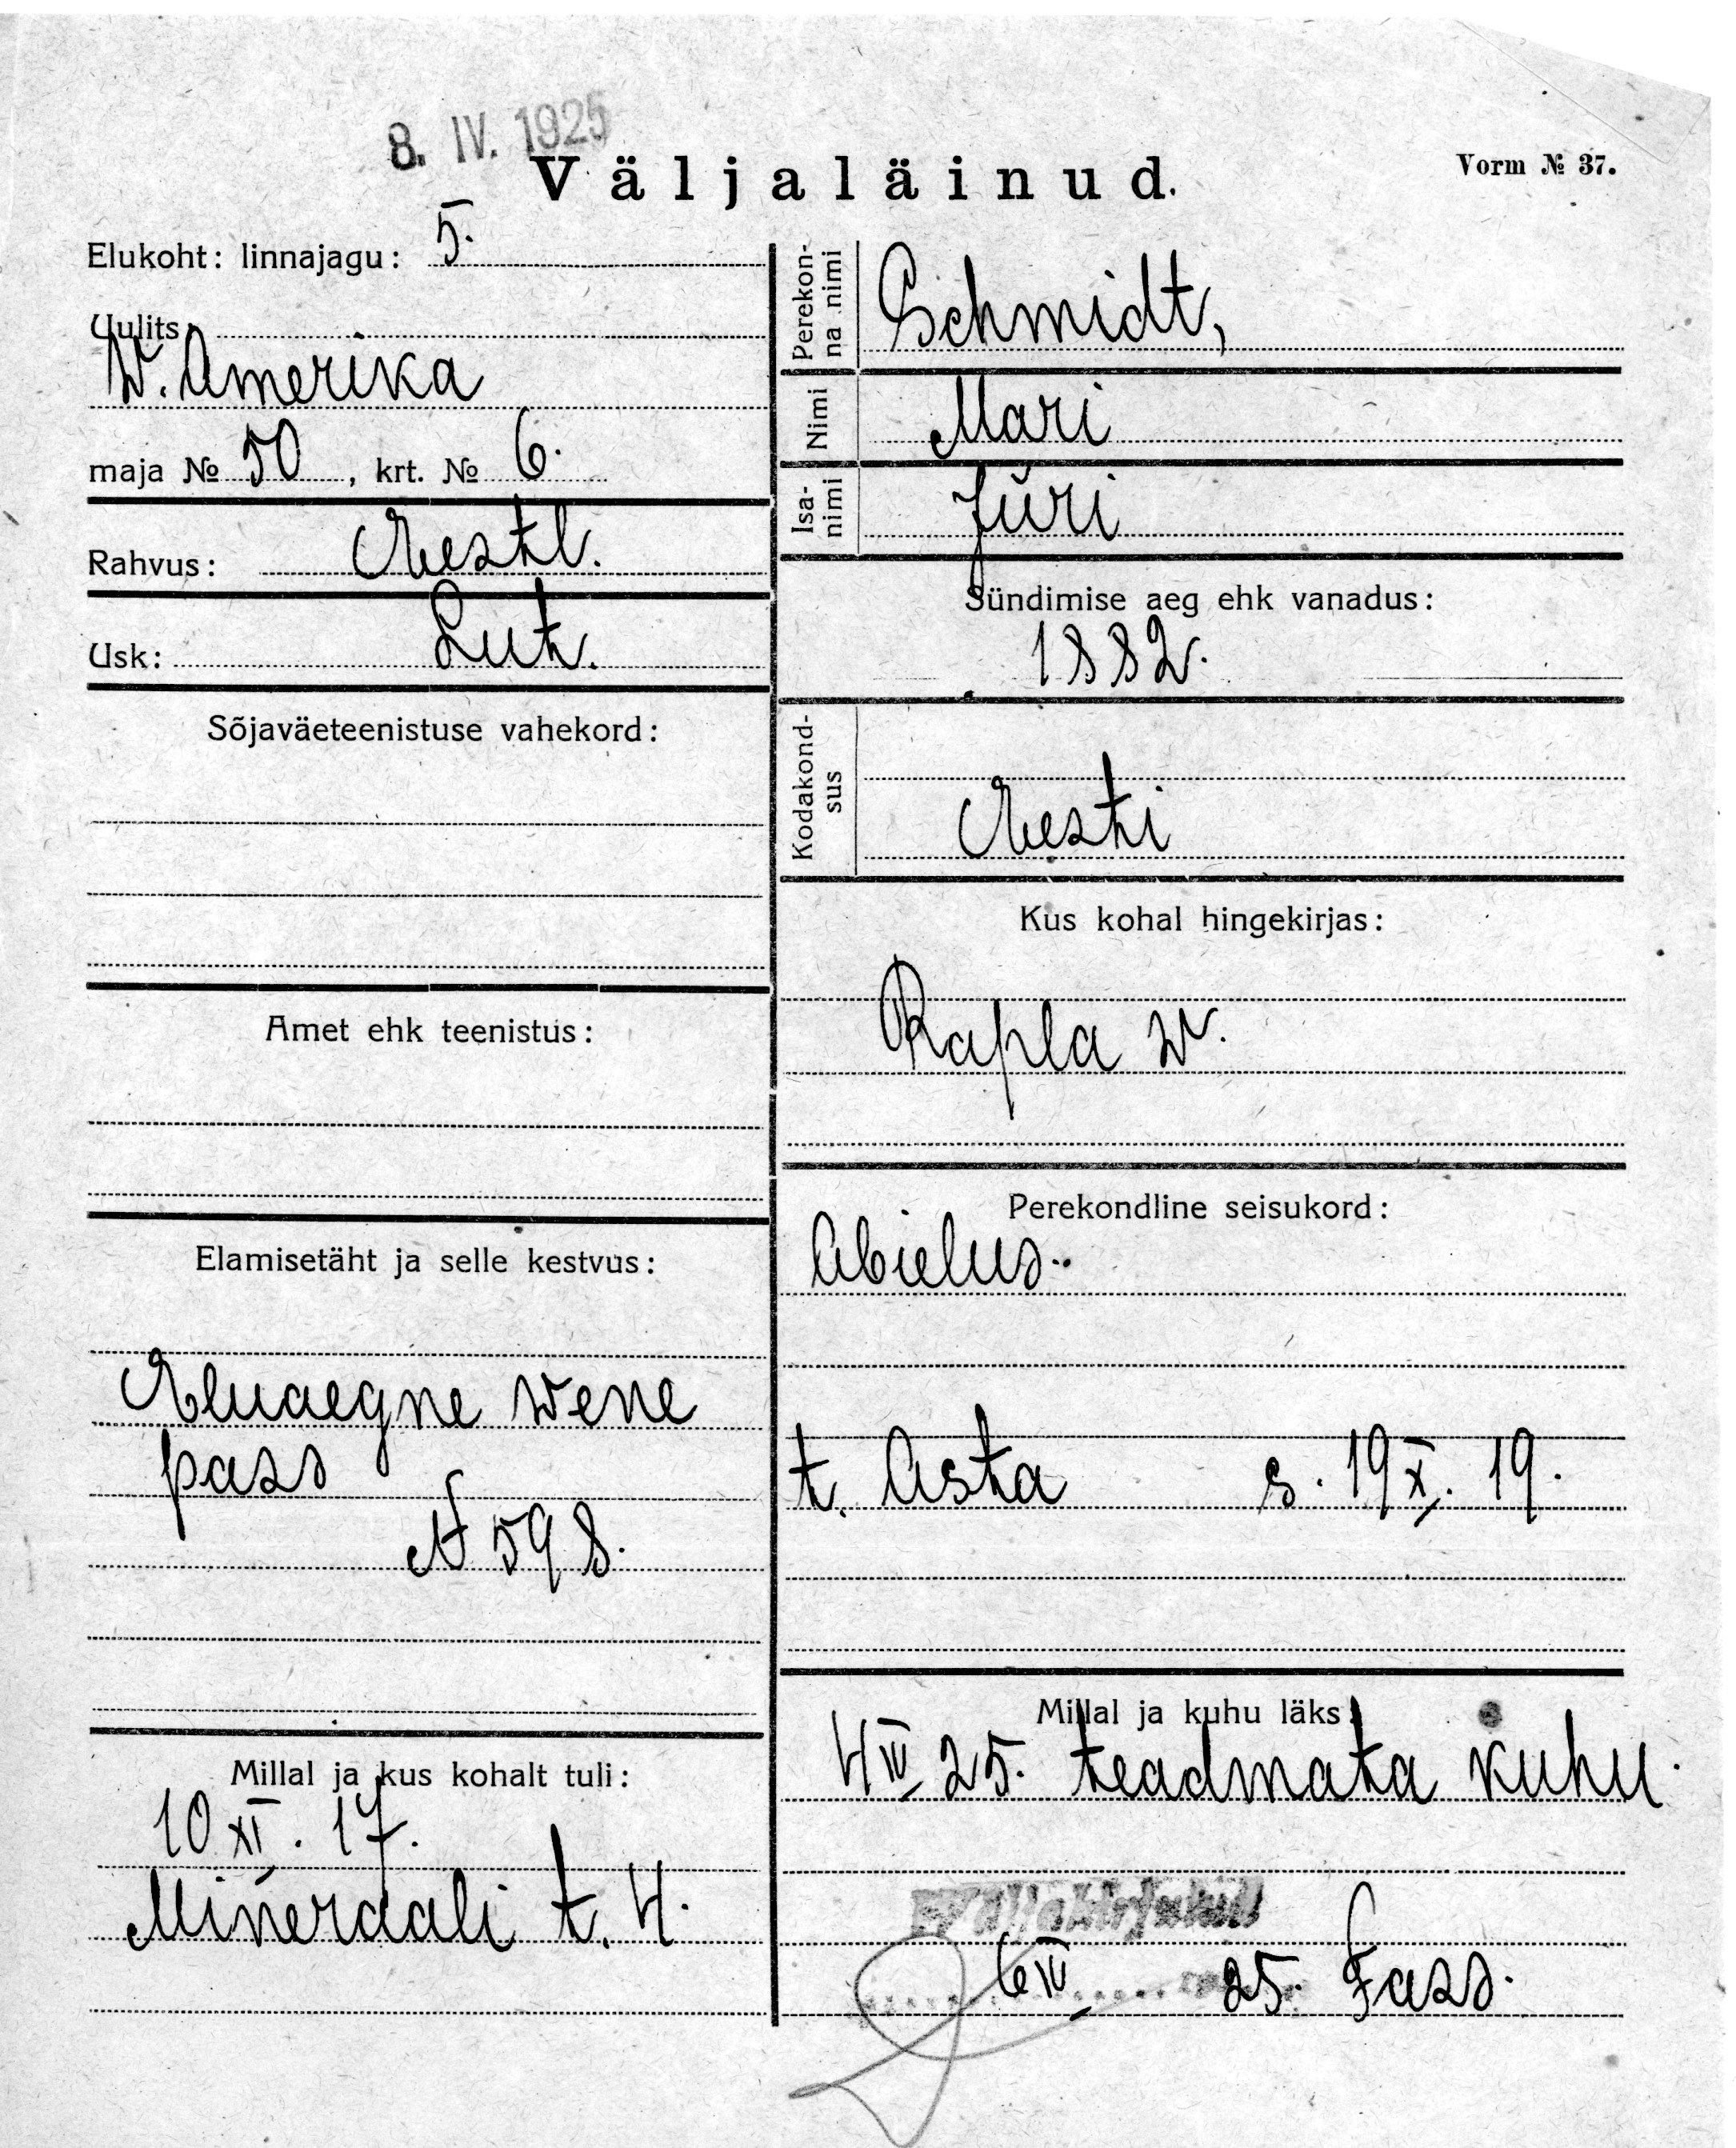 8. IV. 1925
Väljaläinud.
Vorm № 37.
Elukoht: linnajagu: 5.
Uulits:
W. Amerika
maja № 50, krt. № 6.
Rahvus: Eestl.
Usk: Lut.
Sõjaväeteenistuse vahekord:
Amet ehk teenistus:
Elamisetäht ja selle kestvus:
Eluaegne wene
pass
N 598.
Millal ja kus kohalt tuli:
10 XI. 17.
Mineraali t. 4.
Perekon-
na nimi
Schmidt,
Nimi
Mari
Isa-
nimi
Jüri
Sündimise aeg ehk vanadus:
1882.
Kodakond-
sus
Eesti
Kus kohal hingekirjas:
Rapla w.
Perekondline seisukord:
Abielus.
t. Asta s. 19 X. 19.
Millal ja kuhu läks:
4 IV 25. teadmata kuhu.
Väljakirjutud
6 IV 25. Fass.